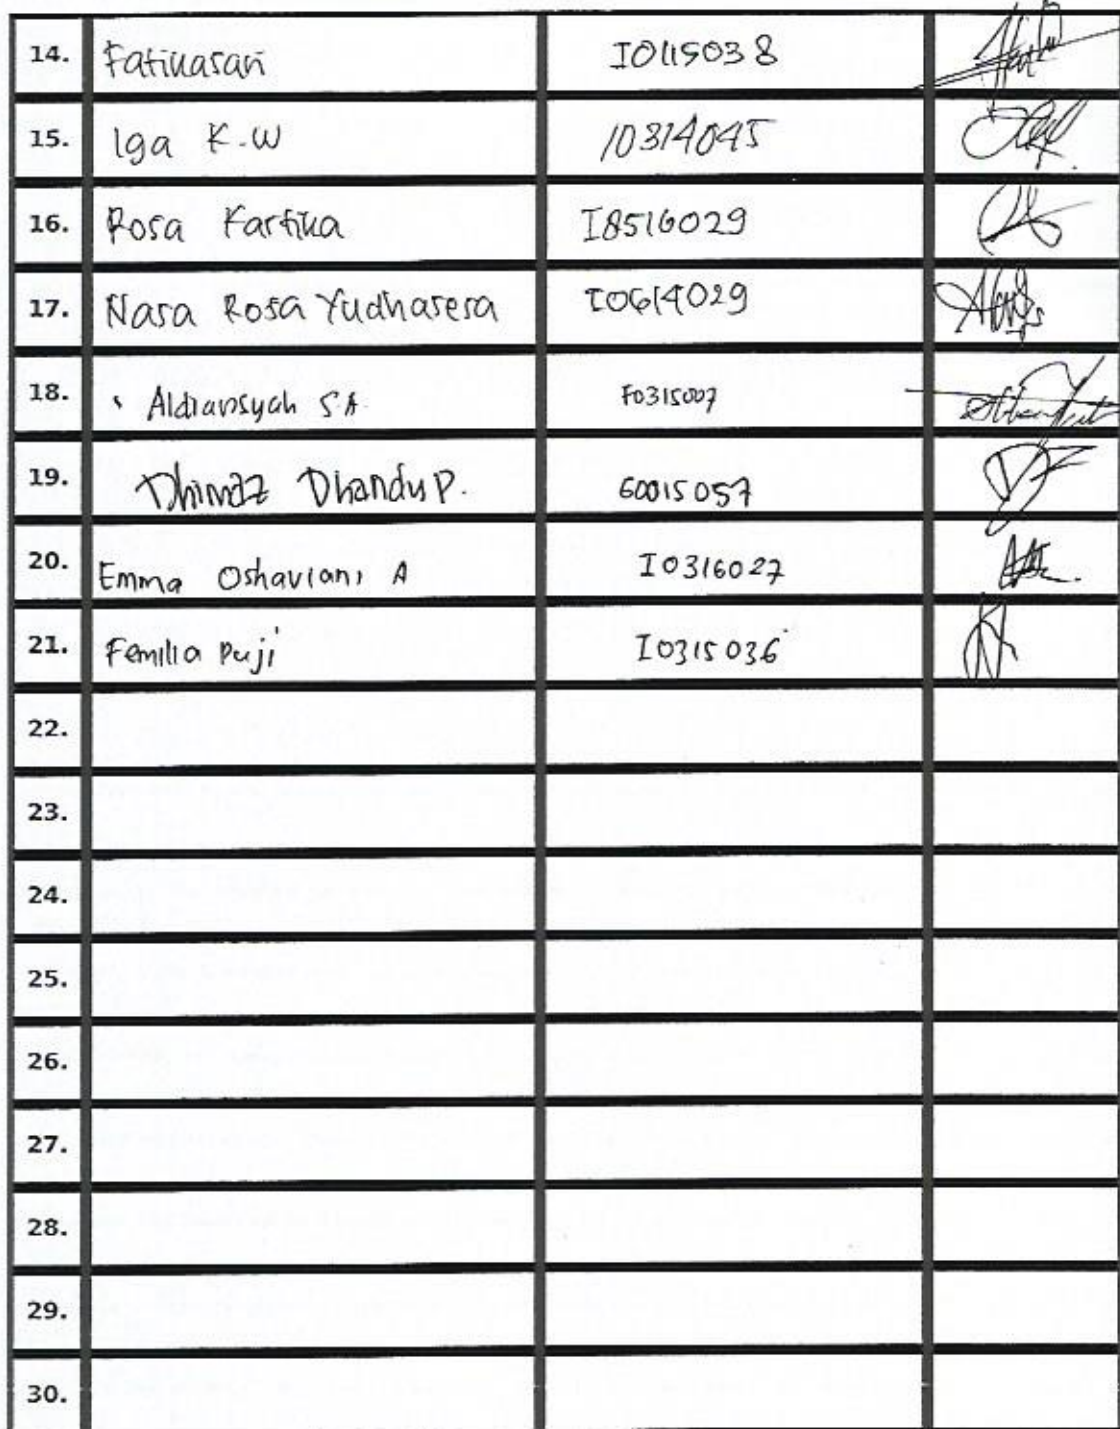 14. Fatikasari I0115038
15. Iga K.W I0314045
16. Rosa Kartika I8516029
17. Nara Rosa Yudharesa I0614029
18. Aldiansyah S.A F0315007
19. Dhimaz Dhandu P. G0015057
20. Emma Oshaviani A I0316027
21. Femilia Puji I0315036
22.
23.
24.
25.
26.
27.
28.
29.
30.